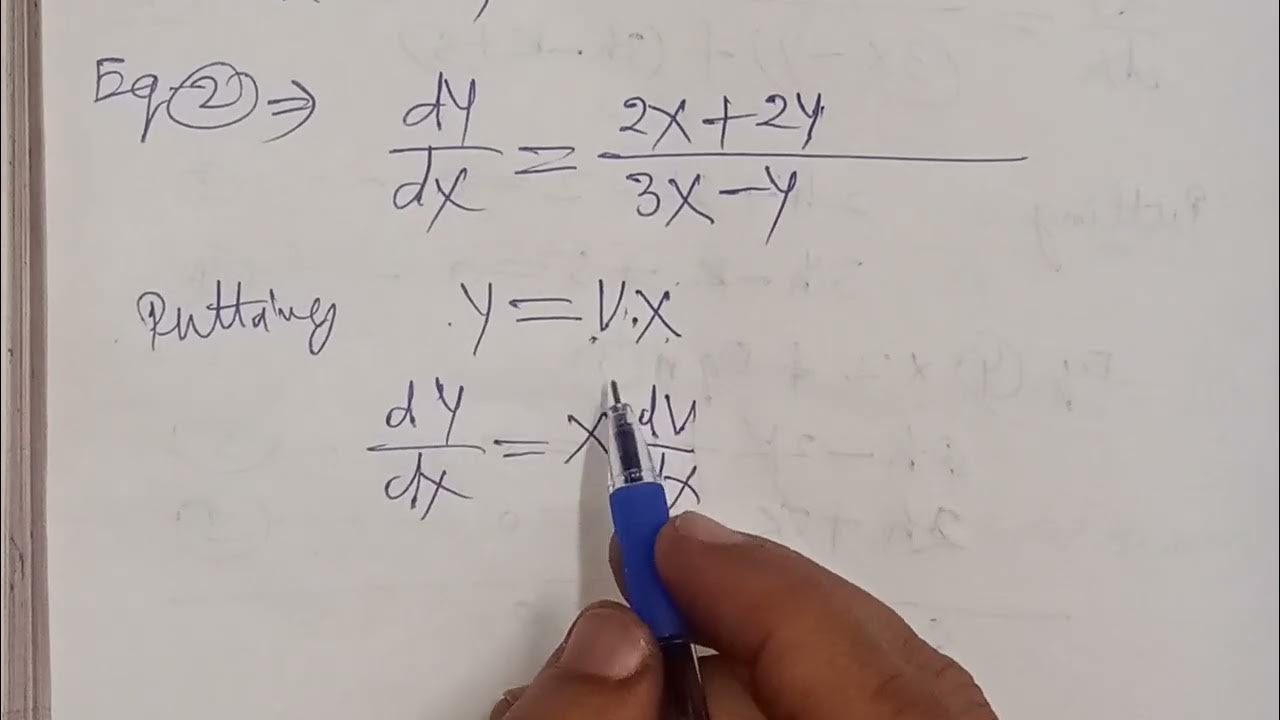 Eq-② ⇒ dy/dx = 2x+2y / 3x-y
Putting y = V.x
dy/dx = x dV/dx